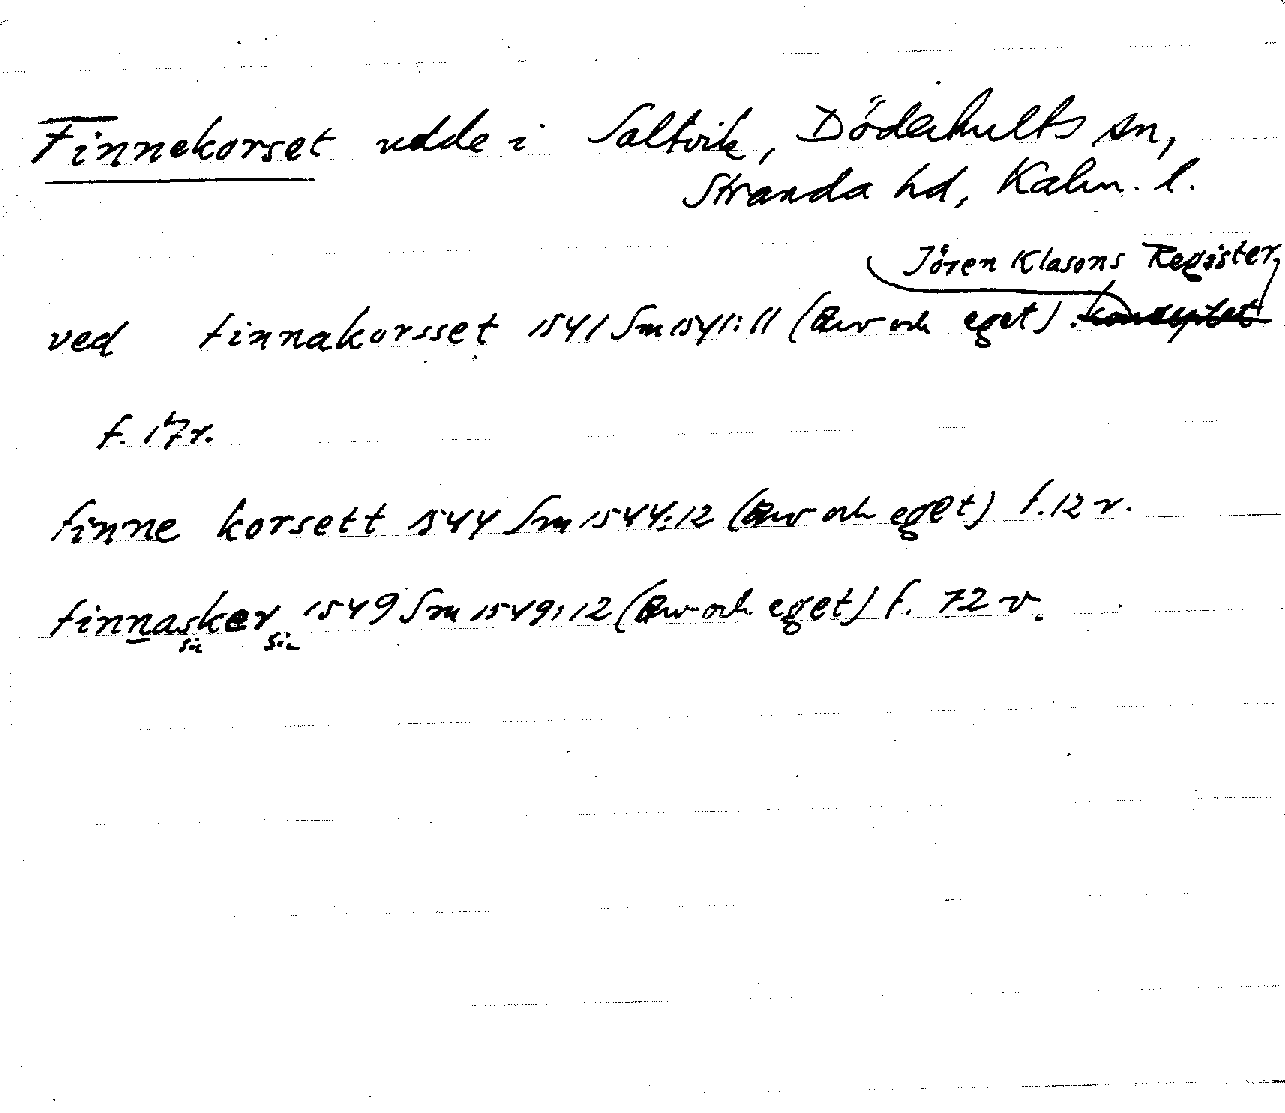 Finnekorset udde i Saltvik, Döderhults sn,
Stranda hd, Kalm. l.
Jören Klasons Register
ved finnakorsset 1541 Sm 1541:11 (Arv och eget). konceptet
f. 17r.
finne korsett 1544 Sm 1544:12 (Arv och eget) f. 12 v.
finnasker 1549 Sm 1549:12 (Arv och eget) f. 72 v.
sic sic